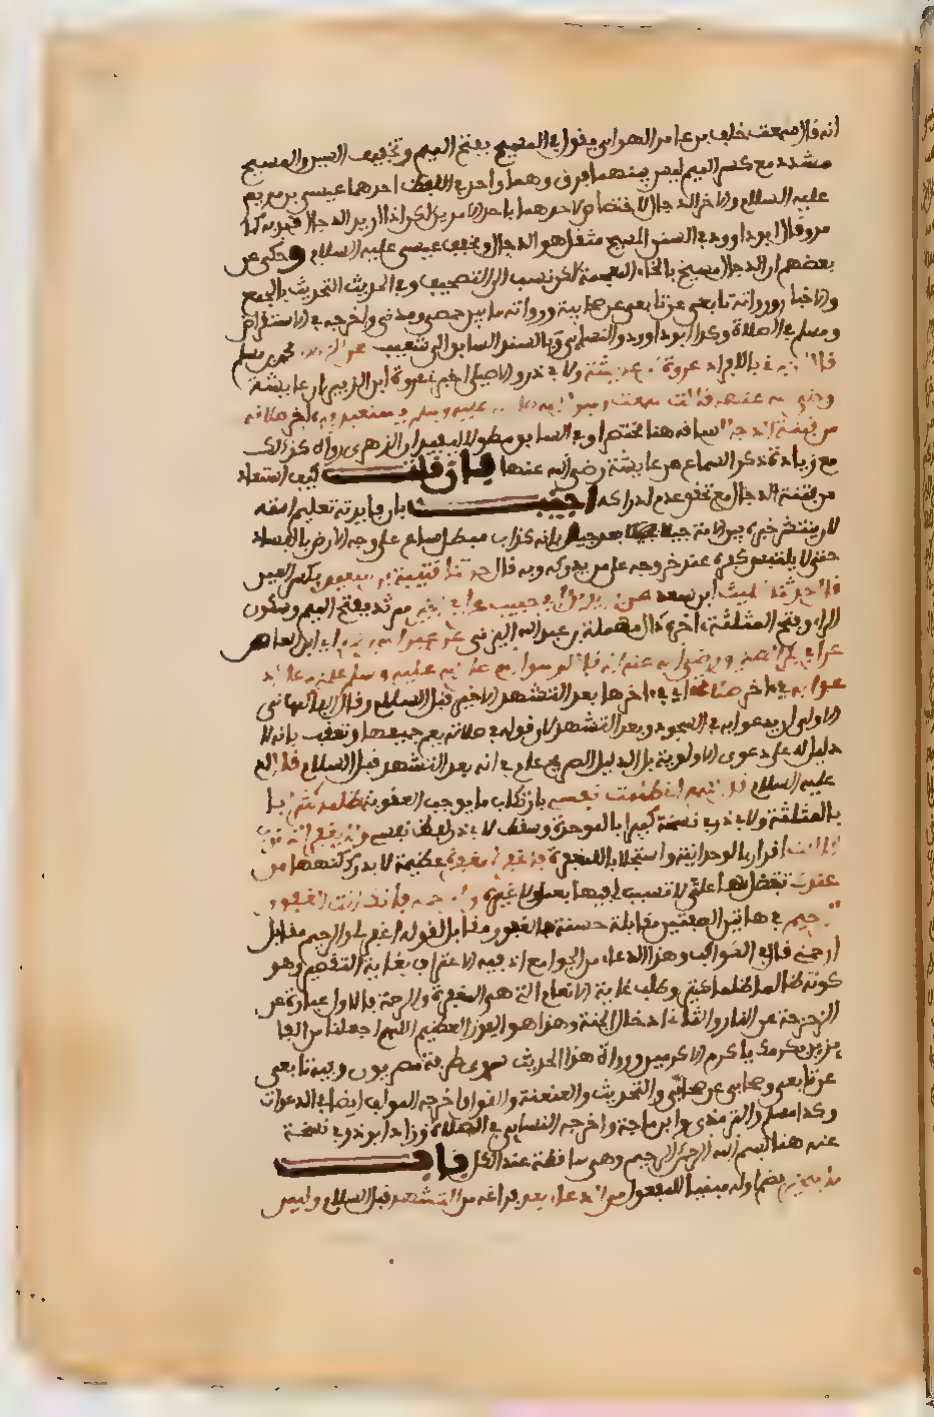 انه قال سمعت خلف بن عامر الهمداني يقول في المسيح بفتح الميم وتخفيف السين والمسيح
مشدد مع كسر الميم ليس بينهما فرق وهما واحد في اللفظ احدهما عيسى بن مريم
عليه السلام والاخر الدجال لا اختصاص لاحدهما باحد الامرين لكن اذا اريد الدجال قيد به كما
مر وقال ابو داوود في السنن المسيح مثقل هو الدجال ويخفف عيسى عليه السلام وحكي عن
بعضهم ان الدجال مسيخ بالخاء المعجمة لكن نسب الى التصحيف وفي الحديث التحديث بالجمع
والاخبار ورواته تابعي عن تابعي عن صحابية ورواته ما بين حمصي ومدني واخرجه في الاستقراض
ومسلم في الصلاة وكذا ابو داوود والنسائي وبالسند السابق الى شعيب عن الزهري محمد بن مسلم
قال اخبرني بالافراد عروة عن عايشة ولابي ذر والاصيلي اخبرني عروة ابن الزبير ان عايشة
رضي الله عنها قالت سمعت رسول الله صلى الله عليه وسلم يستعيذ في اخر صلاته
من فتنة الدجال ساقه هنا مختصرا وفي السابق مطولا ليفيد ان الزهري رواه كذلك
مع زيادة ذكر السماع عن عايشة رضي الله عنها فان قلت كيف استعاذ
من فتنة الدجال مع تحقق عدم ادراكه اجيب بان فايدته تعليم امته
لان ينتشر خبره بين الامة جيلا بعد جيل بانه كذاب مبطل ساع على وجه الارض بالفساد
حتى لا يلتبس كفره عند خروجه على من يدركه وبه قال حدثنا قتيبة بن سعيد بكسر العين
قال حدثنا ليث ابن سعد عن يزيد بن ابي حبيب عن ابي الخير مرثد بفتح الميم وسكون
الراء وبفتح المثلثة اخره دال مهملة بن عبد الله اليزني عن عبد الله بن عمرو اي ابن العاص
عن ابي بكر الصديق رضي الله عنه انه قال لرسول الله صلى الله عليه وسلم علمني دعاء
ادعوا به في اخر صلاتي اي في اخرها بعد التشهد الاخير قبل السلام وقال الفاكهاني
الاولى ان يدعوا به في السجود وبعد التشهد لان قوله في صلاته يعم جميعها وتعقب بانه لا
دليل له على دعوى الاولوية بل الدليل الصريح عام في انه بعد التشهد قبل السلام قال له
عليه السلام قل اللهم اني ظلمت نفسي بارتكاب ما يوجب العقوبة ظلما كثيرا
بالمثلثة ولابي ذر في نسخة كبيرا بالموحدة وسقط لابي ذر لفظ نفسي ولا يغفر الذنوب
الا انت اقرار بالوحدانية واستجلاب للمغفرة فاغفر لي مغفرة عظيمة لا يدرك كنهها من
عندك تتفضل بها علي لا تسبب لي فيها بعمل ولا غيره وارحمني انك انت الغفور
الرحيم في هاتين الصفتين مقابلة حسنة فالغفور مقابل لقوله اغفر لي والرحيم مقابل
ارحمني قال في الكواكب وهذا الدعاء من الجوامع اذ فيه الاعتراف بغاية التقصير وهو
كونه ظالما ظلما كثيرا وطلب غاية الانعام التي هي المغفرة والرحمة فالاول عبارة عن
الزحزحة عن النار والثاني ادخال الجنة وهذا هو الفوز العظيم اللهم اجعلنا من الفا
يزين بكرمك يا كرم الاكرمين ورواة هذا الحديث سوى طرفيه مصريون وفيه تابعي
عن تابعي وصحابي عن صحابي والتحديث والعنعنة والقول واخرجه المولف ايضا في الدعوات
وكذا مسلم والترمذي وابن ماجة واخرجه النسايي في الصلاة وزاد ابو ذر في نسخة
عنه هنا بسم الله الرحمن الرحيم وهي ساقطة عند الكل باب
ما يتخير بضم اوله مبنيا للمفعول من الدعاء بعد فراغه من التشهد قبل السلام وليس